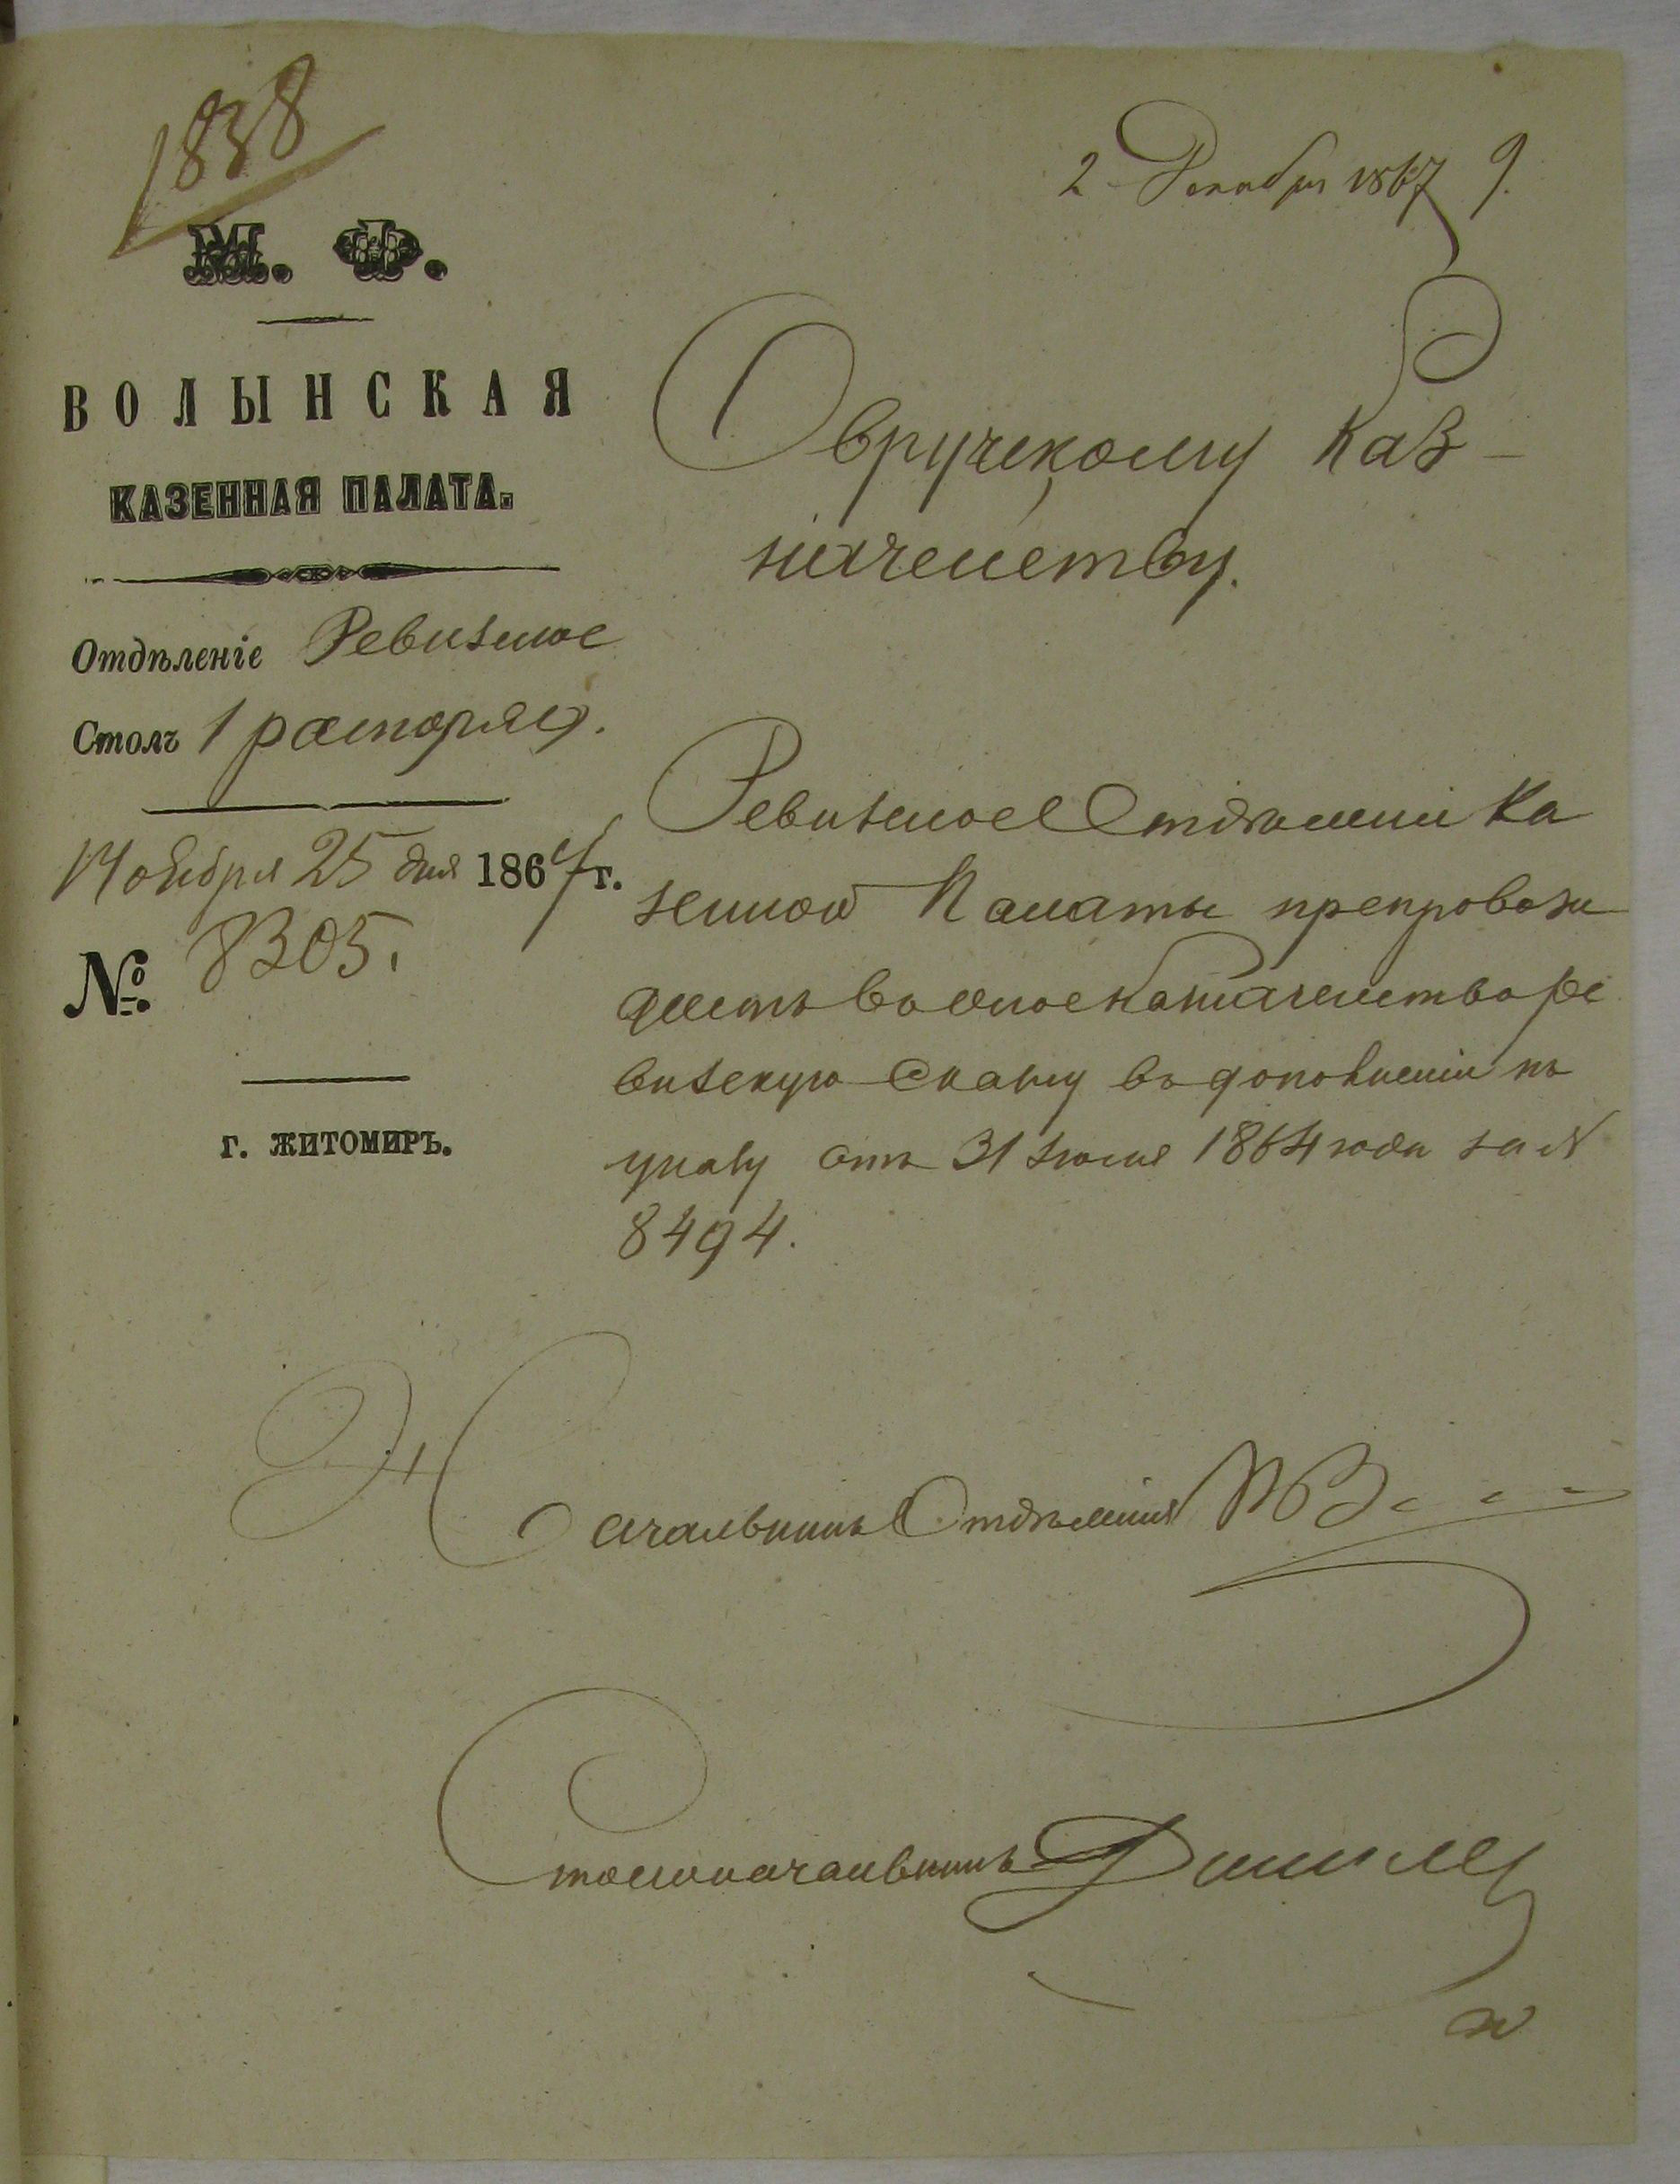 1838
2 Декабря 1867 г.
М. Ф.
ВОЛЫНСКАЯ
КАЗЕННАЯ ПАЛАТА.
Отдѣленіе Ревизское
Столъ 1 распоряд.
Ноября 25 дня 1867 г.
№ 8305.
г. ЖИТОМИРЪ.
Овручскому Каз-
начейству.
Ревизское Отдѣленіи Ка
зенной Палаты препровож
даетъ въ оное Казначейство ре
визскую Скаску въ дополненіи къ
указу отъ 31 Іюля 1864 года за №
8494.
Начальникъ Отдѣленія
Столоначальникъ